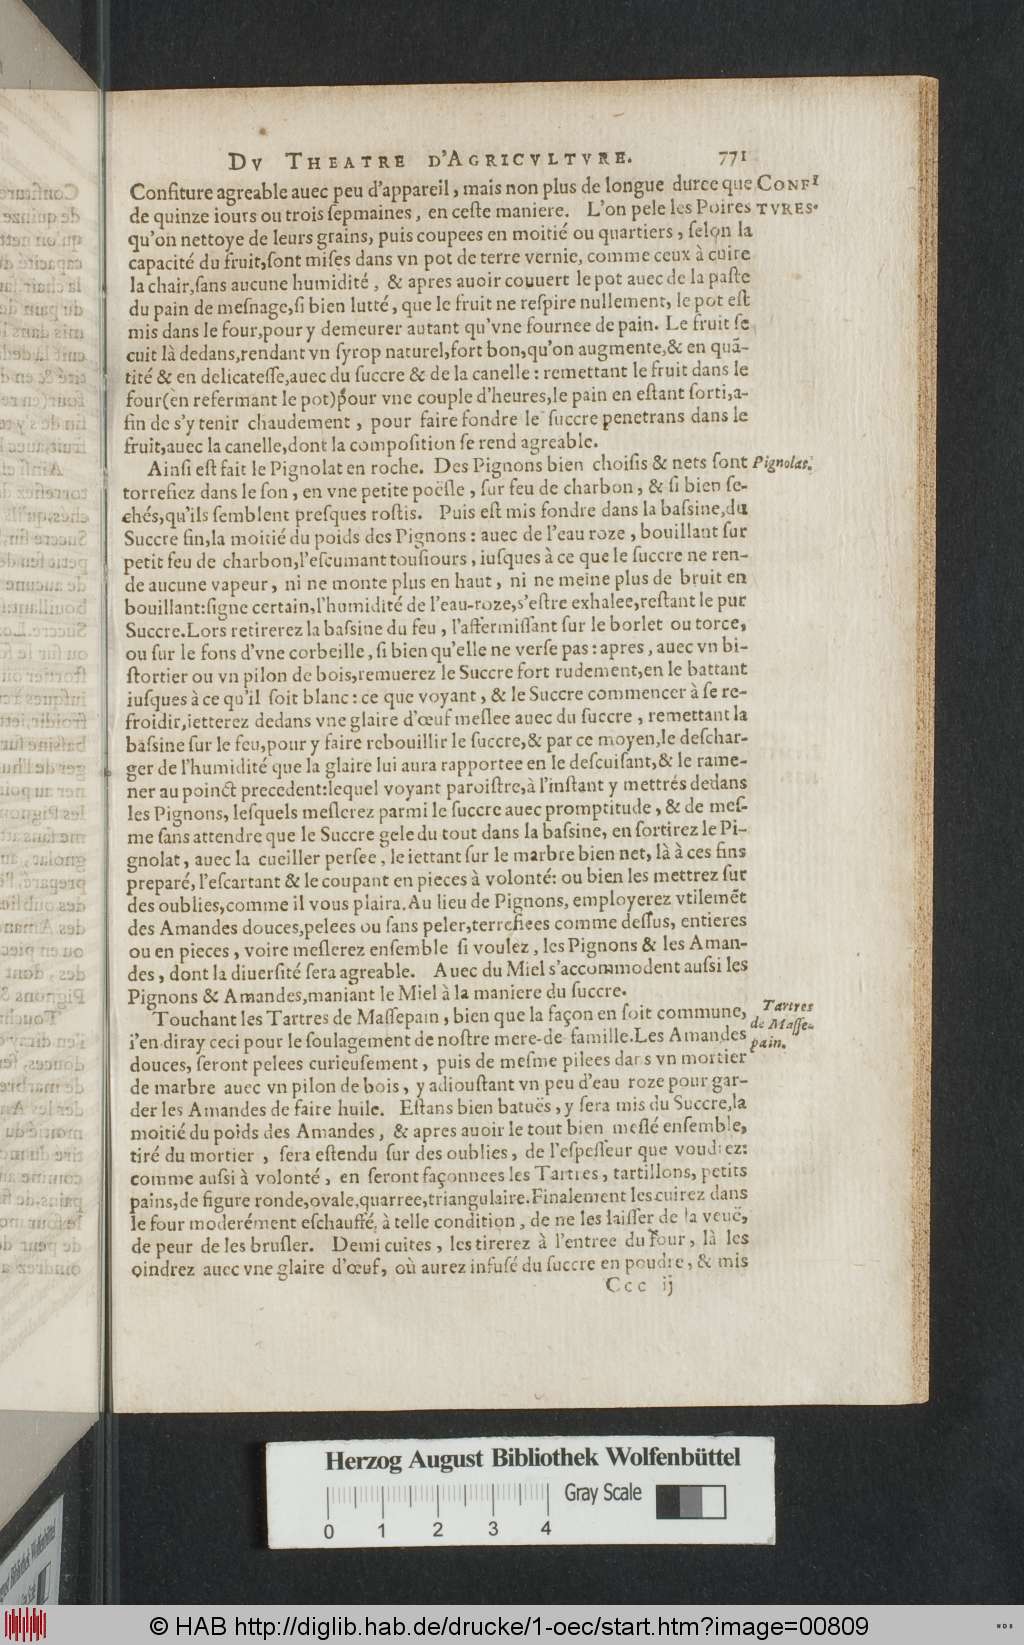 DV THEATRE D'AGRICVLTVRE. 771
Confiture agreable auec peu d'appareil, mais non plus de longue duree que CONFI
de quinze iours ou trois ſepmaines, en ceſte maniere. L'on pele les Poires TVRES.
qu'on nettoye de leurs grains, puis coupees en moitié ou quartiers, ſelon la
capacité du fruit, ſont miſes dans vn pot de terre vernie, comme ceux à cuire
la chair, ſans aucune humidité, & apres auoir couuert le pot auec de la paſte
du pain de meſnage, ſi bien lutté, que le fruit ne reſpire nullement, le pot eſt
mis dans le four, pour y demeurer autant qu'vne fournee de pain. Le fruit ſe
cuit là dedans, rendant vn ſyrop naturel, fort bon, qu'on augmente, & en quã-
tité & en delicateſſe, auec du ſuccre & de la canelle: remettant le fruit dans le
four (en refermant le pot) pour vne couple d'heures, le pain en eſtant ſorti, a-
fin de s'y tenir chaudement, pour faire fondre le ſuccre penetrans dans le
fruit, auec la canelle, dont la compoſition ſe rend agreable.
Ainſi eſt fait le Pignolat en roche. Des Pignons bien choiſis & nets ſont Pignolat.
torrefiez dans le ſon, en vne petite poëſle, ſur feu de charbon, & ſi bien ſe-
chés, qu'ils ſemblent preſques roſtis. Puis eſt mis fondre dans la baſsine, du
Succre fin, la moitié du poids des Pignons: auec de l'eau roze, bouillant ſur
petit feu de charbon, l'eſcumant touſiours, iuſques à ce que le ſuccre ne ren-
de aucune vapeur, ni ne monte plus en haut, ni ne meine plus de bruit en
bouillant: ſigne certain, l'humidité de l'eau-roze, s'eſtre exhalee, reſtant le pur
Succre. Lors retirerez la baſsine du feu, l'affermiſſant ſur le borlet ou torce,
ou ſur le fons d'vne corbeille, ſi bien qu'elle ne verſe pas: apres, auec vn bi-
ſtortier ou vn pilon de bois, remuerez le Succre fort rudement, en le battant
iuſques à ce qu'il ſoit blanc: ce que voyant, & le Succre commencer à ſe re-
froidir, ietterez dedans vne glaire d'œuf meſlee auec du ſuccre, remettant la
baſsine ſur le feu, pour y faire rebouillir le ſuccre, & par ce moyen, le deſchar-
ger de l'humidité que la glaire lui aura rapportee en le deſcuiſant, & le rame-
ner au poinct precedent: lequel voyant paroiſtre, à l'inſtant y mettrés dedans
les Pignons, leſquels meſlerez parmi le ſuccre auec promptitude, & de meſ-
me ſans attendre que le Succre gele du tout dans la baſsine, en ſortirez le Pi-
gnolat, auec la cueiller perſee, le iettant ſur le marbre bien net, là à ces fins
preparé, l'eſcartant & le coupant en pieces à volonté: ou bien les mettrez ſur
des oublies, comme il vous plaira. Au lieu de Pignons, employerez vtilemẽt
des Amandes douces, pelees ou ſans peler, terrefiees comme deſſus, entieres
ou en pieces, voire meſlerez enſemble ſi voulez, les Pignons & les Aman-
des, dont la diuerſité ſera agreable. Auec du Miel s'accommodent auſsi les
Pignons & Amandes, maniant le Miel à la maniere du ſuccre.
Touchant les Tartres de Maſſepain, bien que la façon en ſoit commune, Tartres
i'en diray ceci pour le ſoulagement de noſtre mere-de famille. Les Amandes de Maſſe-
douces, ſeront pelees curieuſement, puis de meſme pilees dans vn mortier pain.
de marbre auec vn pilon de bois, y adiouſtant vn peu d'eau roze pour gar-
der les Amandes de faire huile. Eſtans bien batuës, y ſera mis du Succre, la
moitié du poids des Amandes, & apres auoir le tout bien meſlé enſemble,
tiré du mortier, ſera eſtendu ſur des oublies, de l'eſpeſſeur que voudrez:
comme auſsi à volonté, en ſeront façonnees les Tartres, tartillons, petits
pains, de figure ronde, ovale, quarree, triangulaire. Finalement les cuirez dans
le four moderément eſchauffé, à telle condition, de ne les laiſſer de la veuë,
de peur de les bruſler. Demi cuites, les tirerez à l'entree du four, là les
oindrez auec vne glaire d'œuf, où aurez infuſé du ſuccre en poudre, & mis
Ccc ij
Herzog August Bibliothek Wolfenbüttel
Gray Scale
0 1 2 3 4
© HAB http://diglib.hab.de/drucke/1-oec/start.htm?image=00809